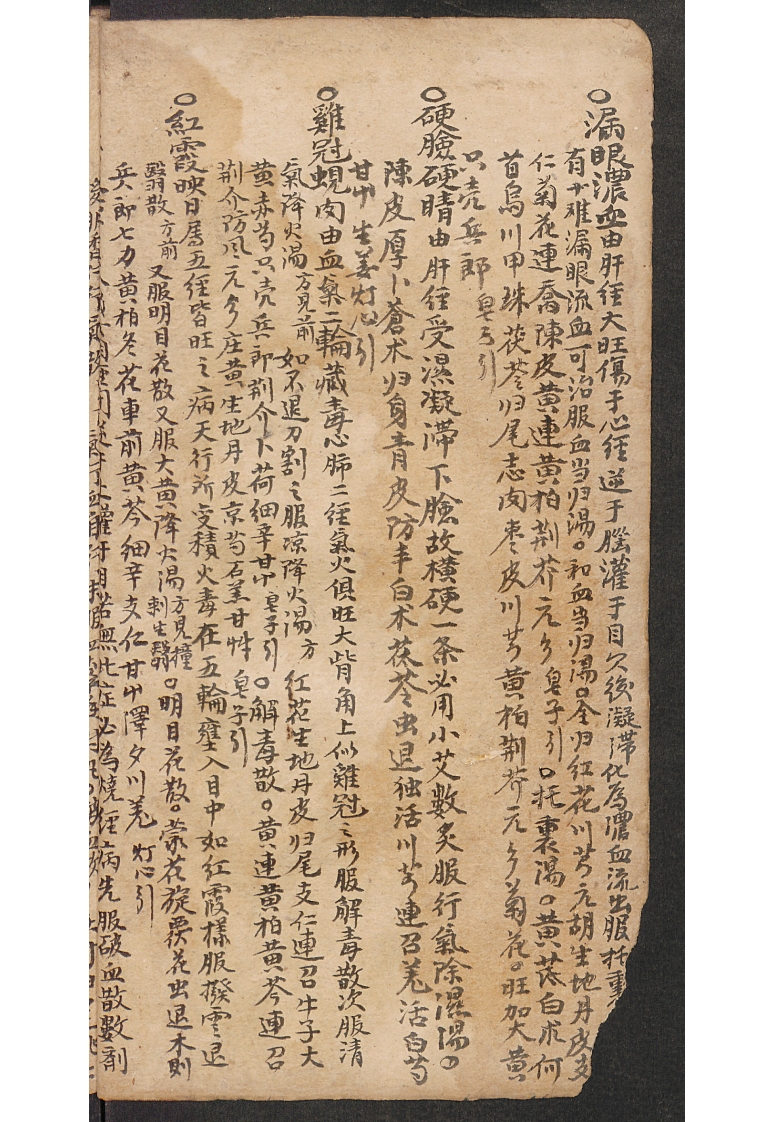 ○漏眼濃血由肝經大旺傷于心經逆于腦灌于目欠後凝滯化為濃血流出服托裏
有廿难漏眼流血可治服血当归湯。和血当归湯。全归红花川芎元胡生地丹皮支
仁菊花連喬陳皮黄連黄柏荆芥元参皂子引。托裏湯。黄芪白术何
首烏川甲珠茯苓归尾志肉枣皮川芎黄柏荆芥元参菊花。旺加大黄
只壳兵郎 皂子引
○硬臉硬睛由肝經受濕凝滯下臉故横硬一条必用小艾數炙服行氣除濕湯。
陳皮厚卜蒼术归身青皮防丰白术茯苓虫退独活川芎連召羌活白芍
甘艸 生姜灯心引
○雞冠蜆肉由血氣二輪藏毒心肺二經氣火俱旺大眥角上似雞冠之形服解毒散次服清
氣降火湯方見前 如不退刀割之服凉降火湯方 红花生地丹皮归尾支仁連召牛子大
黄赤芍只壳兵郎荆介卜荷細辛甘艸 皂子引。解毒散。黄連黄柏黄芩連召
荆介防风元参庄黄生地丹皮京芍石羔甘艸 皂子引
○紅霞映日属五經皆旺之病天行所受積火毒在五輪壅入目中如红霞樣服撥雲退
翳散方前 又服明目花散又服大黄降火湯方見撞刺生翳。明目花散。蒙花旋覆花虫退木則
兵郎七力黄柏冬花車前黄芩細辛支仁甘艸澤夕川羌 灯心引
若無此症必為燒經病先服破血散數劑